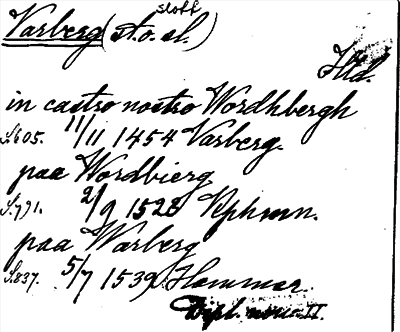 slott
Varberg (st. o. sl.)
Hld.
in castro nostro Wordhbergh
S.605. 11/11 1454 Varberg.
paa Wordbierg
S.791. 2/9 1528 Kphmn.
paa Warberg
S.837. 5/7 1539 Hammar.
Dipl. II.